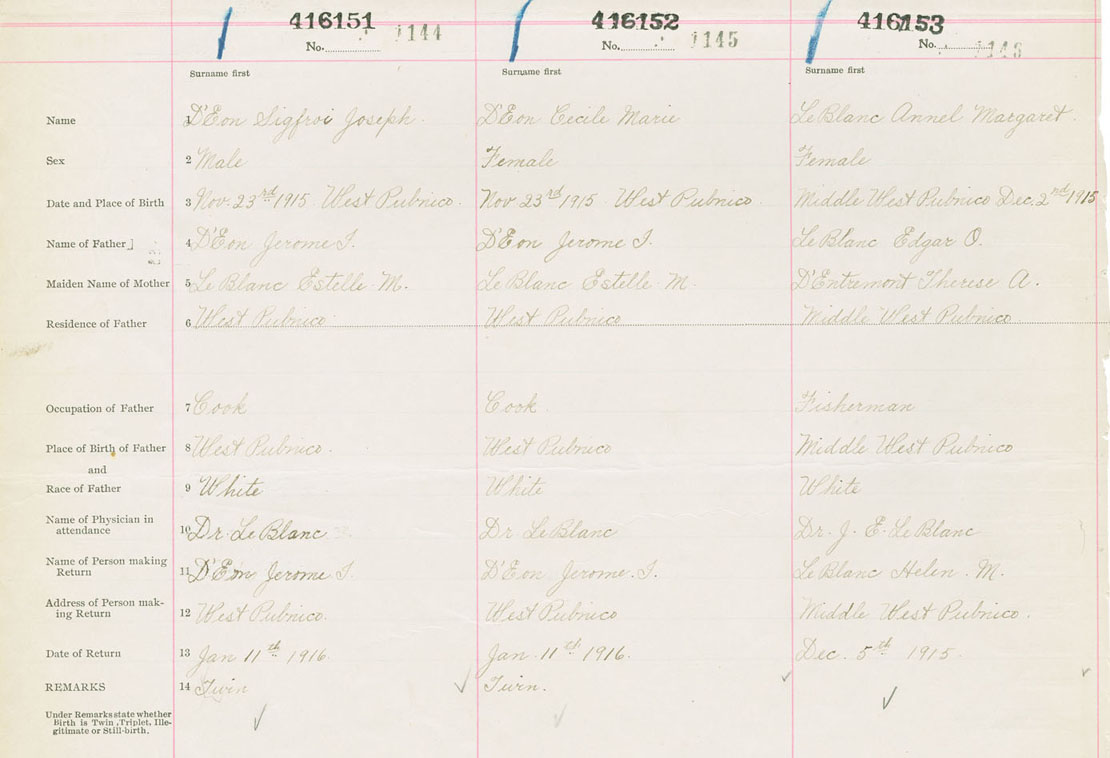 416151 416152 416153
No. 1144 No. 1145 No. 1146
Surname first Surname first Surname first
Name 1 D'Eon Sigfroi Joseph. D'Eon Cecile Marie LeBlanc Annel Margaret.
Sex 2 Male Female Female
Date and Place of Birth 3 Nov. 23rd 1915. West Pubnico. Nov 23rd 1915. West Pubnico. Middle West Pubnico Dec. 2nd 1915
Name of Father 4 D'Eon Jerome I. D'Eon Jerome I. LeBlanc Edgar O.
Maiden Name of Mother 5 LeBlanc Estelle M. LeBlanc Estelle M. D'Entremont Therese A.
Residence of Father 6 West Pubnico West Pubnico Middle West Pubnico
Occupation of Father 7 Cook Cook. Fisherman
Place of Birth of Father 8 West Pubnico. West Pubnico Middle West Pubnico
and
Race of Father 9 White White White
Name of Physician in
attendance 10 Dr. LeBlanc Dr LeBlanc Dr. J. E. LeBlanc
Name of Person making
Return 11 D'Eon Jerome I. D'Eon Jerome. I. LeBlanc Helen. M.
Address of Person mak-
ing Return 12 West Pubnico. West Pubnico Middle West Pubnico.
Date of Return 13 Jan 11th 1916. Jan. 11th 1916. Dec. 5th 1915.
REMARKS 14 Twin Twin.
Under Remarks state whether
Birth is Twin, Triplet, Ille-
gitimate or Still-birth.